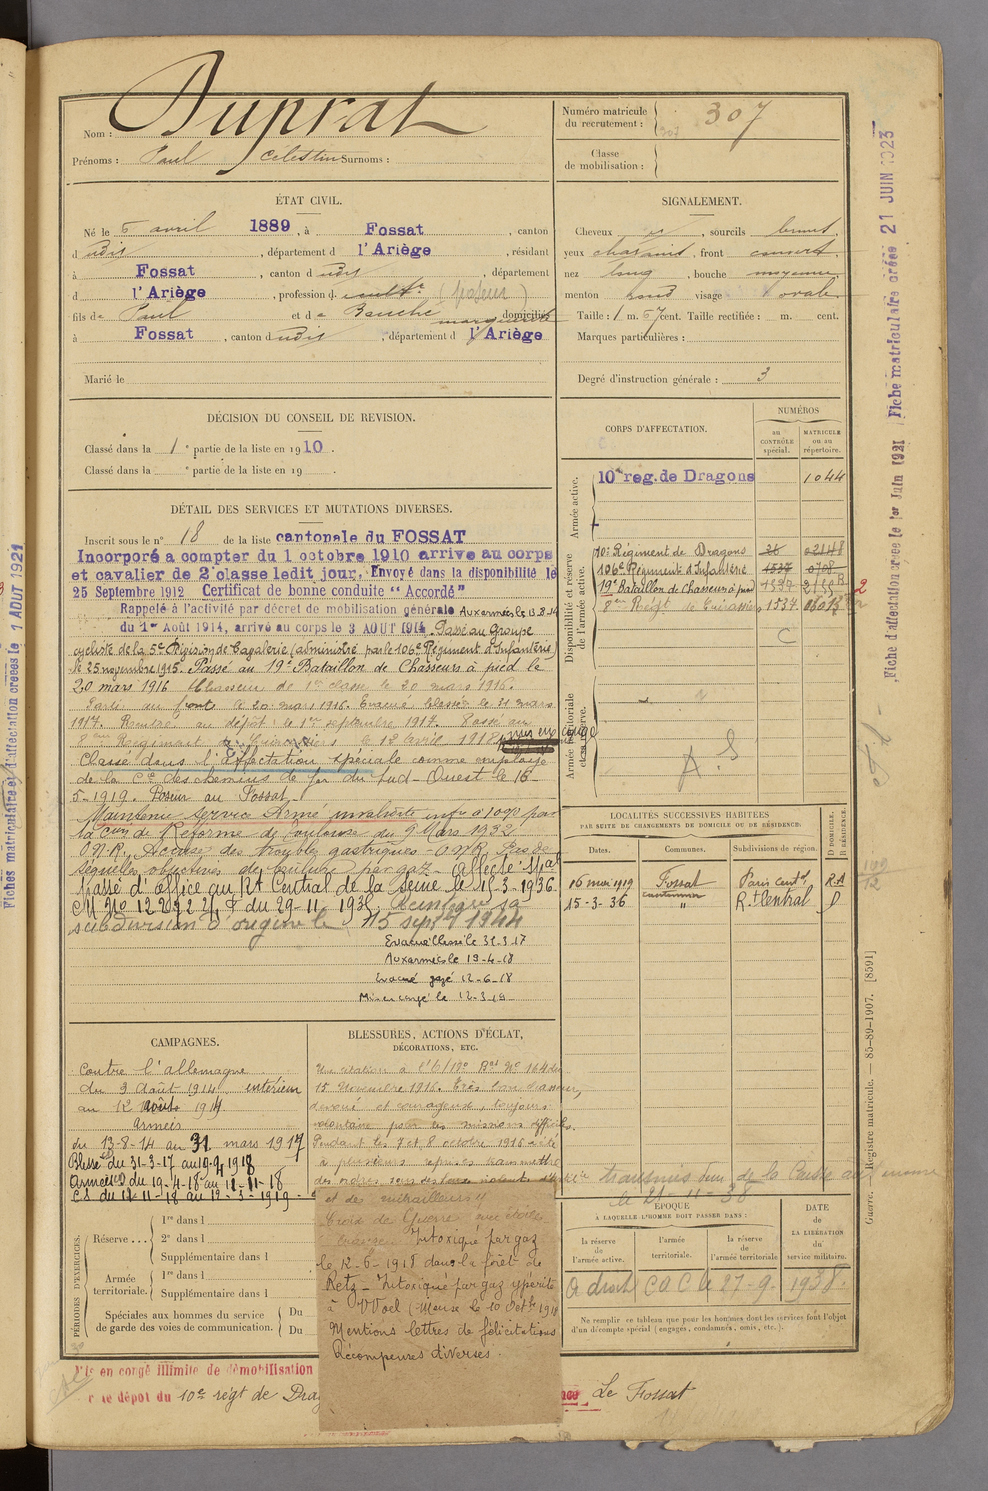 Nom : Duprat
Prénoms : Paul Célestin Surnoms :
Numéro matricule du recrutement : 307
Classe de mobilisation :
ÉTAT CIVIL.
Né le 5 avril 1889, à Fossat, canton
d udit, département d l'Ariège, résidant
à Fossat, canton d udit, département
d l'Ariège, profession d. cult.r (poseur)
fils de Paul et de Bauche marguerite domiciliés
à Fossat, canton d udit, département d l'Ariège
Marié le
SIGNALEMENT.
Cheveux, sourcils bruns,
yeux chatains, front couvert,
nez long, bouche moyenne,
menton rond visage ovale.
Taille : 1 m. 67 cent. Taille rectifiée : m. cent.
Marques particulières :
Degré d'instruction générale : 3
DÉCISION DU CONSEIL DE REVISION.
Classé dans la 1e partie de la liste en 1910.
Classé dans la e partie de la liste en 19 .
DÉTAIL DES SERVICES ET MUTATIONS DIVERSES.
Inscrit sous le n° 18 de la liste cantonale du FOSSAT
Incorporé a compter du 1 octobre 1910 arrive au corps
et cavalier de 2e classe ledit jour, Envoyé dans la disponibilité le
25 Septembre 1912 Certificat de bonne conduite "Accordé"
Rappelé à l'activité par décret de mobilisation générale Aux armées le 13.8.14
du 1er Août 1914, arrivé au corps le 3 AOUT 1914. Passé au Groupe
cycliste de la 5e Division de Cavalerie (administré par le 106e Régiment d'Infanterie)
le 25 novembre 1915. Passé au 19e Bataillon de Chasseurs à pied le
20 mars 1916 Chasseur de 1re classe le 20 mars 1916.
Parti au front le 20 mars 1916. Evacué blessé le 31 mars
1917. Rentré au dépôt le 1er septembre 1917. Passé au
8eme Régiment de Cuirassiers le 12 avril 1918, mis en congé
Classé dans l'affectation spéciale comme employé
de la Cie des chemins de fer du Sud-Ouest le 16-
5-1919. Poseur au Fossat
Maintenu Service Armé invalidité infre à 10% par
la Cion de Réforme de Toulouse du 9 Mars 1932
O.N.R. Accuse des troubles gastriques - O.N.R. Pas de
séquelles objectives de brulure par gaz. Affecté
Passé d'office au Rt Central de la Seine le 15-3-1936
du 29-11-1935 Réintégré sa
subdivision d'origine le 15 septbre 1944
Evacué blessé le 31-3-17
Aux armées le 19-4-18
Evacué gazé 12-6-18
Mis en congé le 12-3-19
CORPS D'AFFECTATION.
NUMÉROS
au CONTRÔLE spécial.
MATRICULE ou au répertoire.
Armée active.
10e reg. de Dragons 1044
Disponibilité et réserve de l'armée active.
10e Régiment de Dragons 26
106e Régiment d'Infanterie 1537 0708
19e Bataillon de Chasseurs à pied 1537
8eme Régt de Cuirassiers 1534
C
Armée territoriale et sa réserve.
A.S
LOCALITÉS SUCCESSIVES HABITÉES
PAR SUITE DE CHANGEMENTS DE DOMICILE OU DE RÉSIDENCE.
Dates. Communes. Subdivisions de région. D DOMICILE. R RÉSIDENCE.
16 mai 1919 Fossat Paris Centl. RA
cantonnier
15-3-36 " R.t Central D
CAMPAGNES.
Contre l'allemagne
du 3 Août 1914 intérieur
au 12 Août 1914
Armées
du 13-8-14 au 31 mars 1917
Blessé du 31-3-17 au 19-4-1918
Armées du 19-4-18 au 11-11-18
C.S. du 11-11-18 au 12-3-1919
BLESSURES, ACTIONS D'ÉCLAT, DÉCORATIONS, ETC.
Une citation à l'O/19e Bat N° 164 du
15 Novembre 1916. Très bon chasseur,
dévoué et courageux, toujours
volontaire pour les missions difficiles.
Pendant les 7 et 8 octobre 1916 a été
à plusieurs reprises transmettre
des ordres sous des feux violents d'
et de mitrailleurs"
Croix de Guerre avec étoile
bronze Intoxiqué par gaz
le 12-6-1918 dans la forêt de
Retz - Intoxiqué par gaz ypérite
à (Meuse le 10 Octbre 1918
Mentions lettres de félicitations
Récompenses diverses.
transmis de la Caisse
le 21-11-38
PÉRIODES D'EXERCICES.
Réserve... 1re dans l
2e dans l
Supplémentaire dans l
Armée territoriale. 1re dans l
Supplémentaire dans l
Spéciales aux hommes du service de garde des voies de communication. Du
Du
ÉPOQUE
À LAQUELLE L'HOMME DOIT PASSER DANS :
la réserve de l'armée active.
l'armée territoriale.
la réserve de l'armée territoriale
DATE de LA LIBÉRATION du service militaire.
A droit C d C le 27-9-1938.
Ne remplir ce tableau que pour les hommes dont les services font l'objet d'un décompte spécial (engagés, condamnés, omis, etc.).
Mis en congé illimité de démobilisation
le dépôt du 10e régt de Drag
Le Fossat
Fiches matricules et d'affectation créées le 1 AOUT 1921
Fiche d'affectation créée le 1er Juin 1921
Fiche matriculaire créée 21 JUIN 1923
Guerre. — Registre matricule. — 85-89-1907. [8591]